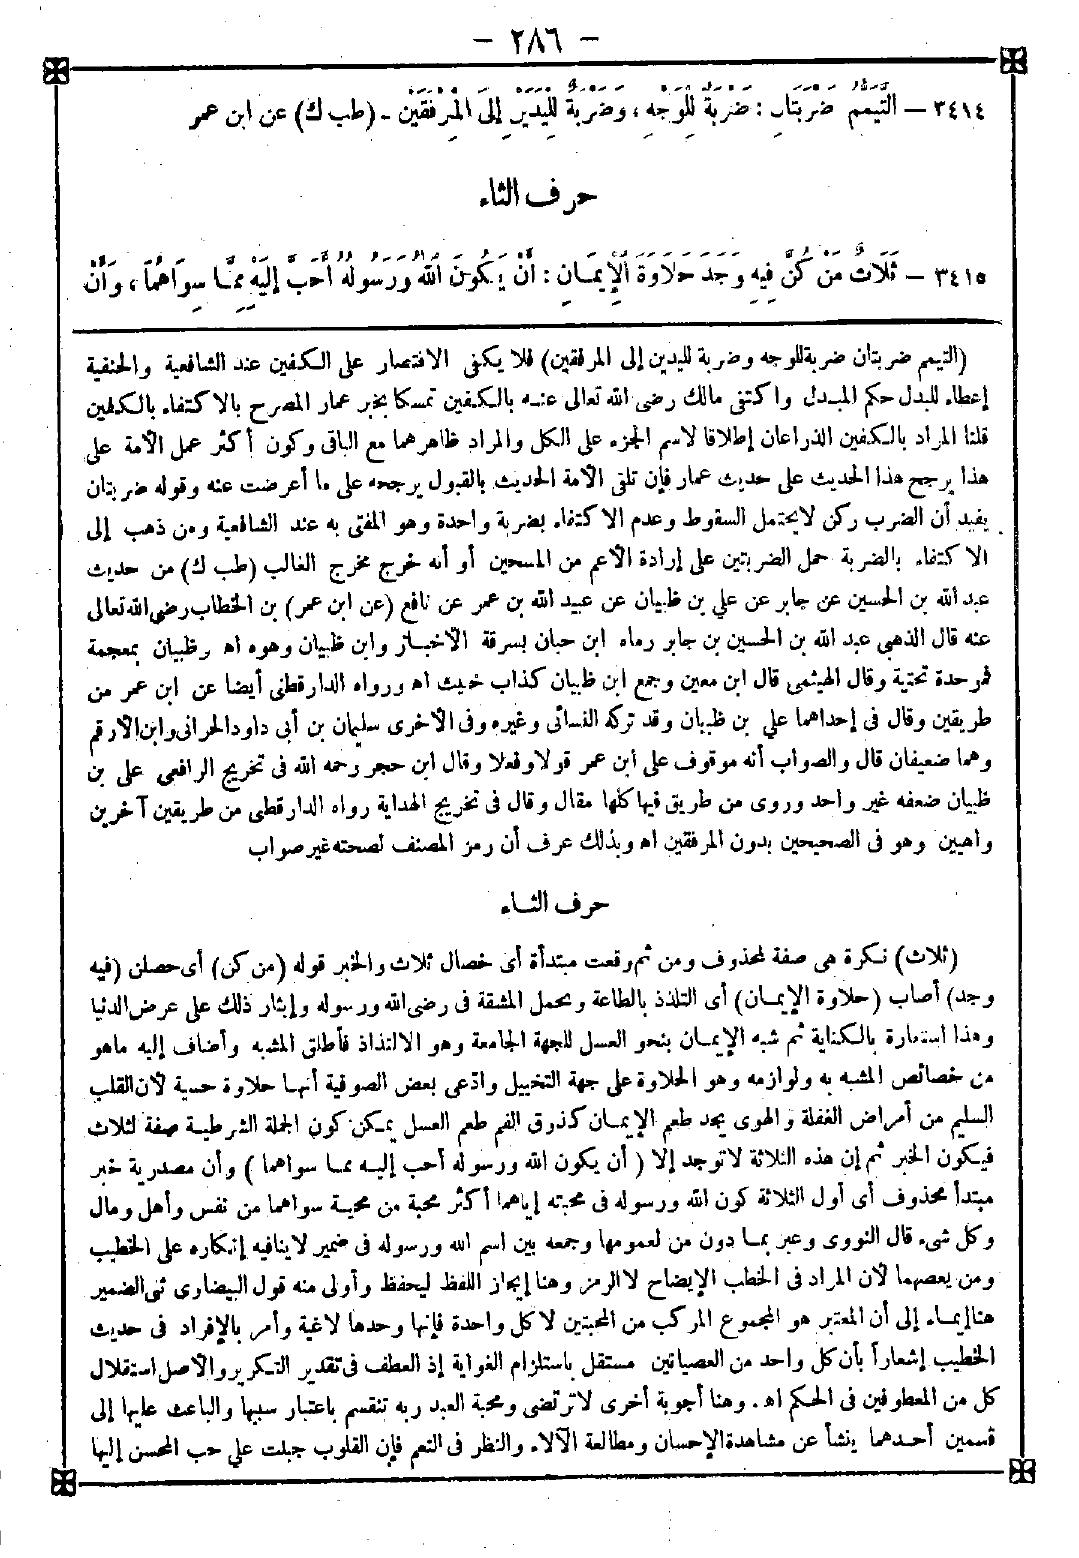 - ٢٨٦ -
٣٤١٤ - التَّيَمُّمُ ضَرْبَتَانِ : ضَرْبَةٌ لِلْوَجْهِ ، وَضَرْبَةٌ لِلْيَدَيْنِ إِلَى الْمِرْفَقَيْنِ - (طب ك) عن ابن عمر
حرف الثاء
٣٤١٥ - ثَلَاثٌ مَنْ كُنَّ فِيهِ وَجَدَ حَلَاوَةَ الْإِيمَانِ : أَنْ يَكُونَ اللهُ وَرَسُولُهُ أَحَبَّ إِلَيْهِ مِمَّا سِوَاهُمَا ، وَأَنْ
(التيمم ضربتان ضربة للوجه وضربة لليدين إلى المرفقين) فلا يكفى الاقتصار على الكفين عند الشافعية والحنفية
إعطاء للبدل حكم المبدل واكتفى مالك رضى الله تعالى عنه بالكفين تمسكا بخبر عمار المصرح بالاكتفاء بالكفين
قلنا المراد بالكفين الذراعان إطلاقا لاسم الجزء على الكل والمراد ظاهرهما مع الباقى وكون أكثر عمل الأمة على
هذا يرجح هذا الحديث على حديث عمار فإن تلقى الأمة الحديث بالقبول يرجحه على ما أعرضت عنه وقوله ضربتان
يفيد أن الضرب ركن لايحتمل السقوط وعدم الاكتفاء بضربة واحدة وهو المفتى به عند الشافعية ومن ذهب إلى
الاكتفاء بالضربة حمل الضربتين على إرادة الأعم من المسحين أو أنه خرج مخرج الغالب (طب ك) من حديث
عبد الله بن الحسين عن جابر عن علي بن ظبيان عن عبيد الله بن عمر عن نافع (عن ابن عمر) بن الخطاب رضى الله تعالى
عنه قال الذهبي عبد الله بن الحسين بن جابر رماه ابن حبان بسرقة الأخبار وابن ظبيان وهوه اه وظبيان بمعجمة
فموحدة تحتية وقال الهيثمى قال ابن معين وجمع ابن ظبيان كذاب خبيث اه ورواه الدارقطنى أيضا عن ابن عمر من
طريقين وقال فى إحداهما علي بن ظبيان وقد تركه النسائى وغيره وفى الأخرى سليمان بن أبى داود الحرانى وابن الأرقم
وهما ضعيفان قال والصواب أنه موقوف على ابن عمر قولا وفعلا وقال ابن حجر رحمه الله فى تخريج الرافعى على بن
ظبيان ضعفه غير واحد وروى من طريق فيها كلها مقال وقال فى تخريج الهداية رواه الدارقطى من طريقين آخرين
واهيين وهو فى الصحيحين بدون المرفقين اه وبذلك عرف أن رمز المصنف لصحته غير صواب
حرف الثاء
(ثلاث) نكرة هى صفة لمحذوف ومن ثم وقعت مبتدأة أى خصال ثلاث والخبر قوله (من كن) أى حصلن (فيه
وجد) أصاب (حلاوة الإيمان) أى التلذذ بالطاعة وتحمل المشقة فى رضى الله ورسوله وإيثار ذلك على عرض الدنيا
وهذا استعارة بالكناية ثم شبه الإيمان بنحو العسل للجهة الجامعة وهو الالتذاذ فأطلق المشبه وأضاف إليه ماهو
من خصائص المشبه به ولوازمه وهو الحلاوة على جهة التخييل وادّعى بعض الصوفية أنها حلاوة حسية لأن القلب
السليم من أمراض الغفلة والهوى يجد طعم الإيمان كذوق الفم طعم العسل يمكن كون الجملة الشرطية صفة لثلاث
فيكون الخبر ثم إن هذه الثلاثة لا توجد إلا ( أن يكون الله ورسوله أحب إليه مما سواهما ) وأن مصدرية خبر
مبتدأ محذوف أى أول الثلاثة كون الله ورسوله فى محبته إياهما أكثر محبة من محبة سواهما من نفس وأهل ومال
وكل شىء قال النووى وعبر بما دون من لعمومها وجمعه بين اسم الله ورسوله فى ضمير لاينافيه إنكاره على الخطيب
ومن يعصهما لأن المراد فى الخطب الإيضاح لا الرمز وهنا إيجاز اللفظ ليحفظ وأولى منه قول البيضاوى ثنى الضمير
هنا إيماء إلى أن المعتبر هو المجموع المركب من المحبتين لا كل واحدة فإنها وحدها لاغية وأمر بالإفراد فى حديث
الخطيب إشعاراً بأن كل واحد من العصيانين مستقل باستلزام الغواية إذ العطف فى تقدير التكرير والأصل استقلال
كل من المعطوفين فى الحكم اه. وهنا أجوبة أخرى لاترتضى ومحبة العبد ربه تنقسم باعتبار سببها والباعث عليها إلى
قسمين أحدهما ينشأ عن مشاهدة الإحسان ومطالعة الآلاء والنظر فى النعم فإن القلوب جبلت على حب المحسن إليها